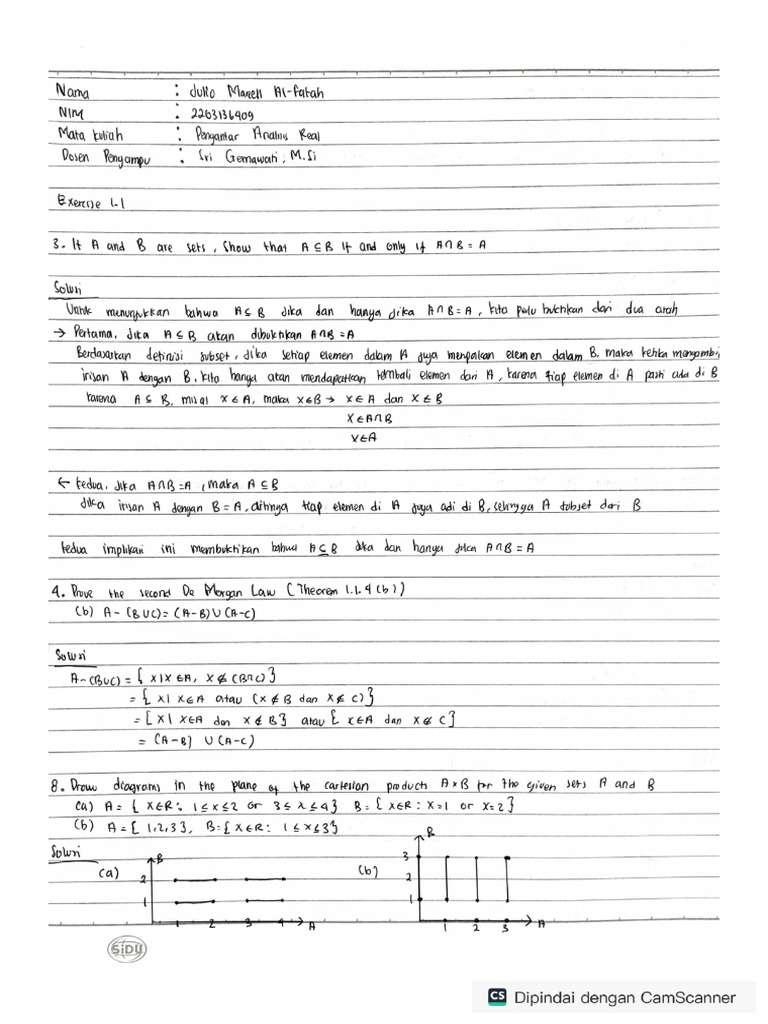 Nama : Juko Marell Al-Fatah
NIM : 2203136909
Mata Kuliah : Pengantar Analisis Real
Dosen Pengampu : Sri Gemawati, M.Si
Exercise 1.1
3. If A and B are sets, show that A ⊆ B if and only if A∩B = A
Solusi
Untuk menunjukkan bahwa A⊆B jika dan hanya jika A∩B=A, kita perlu buktikan dari dua arah
→ Pertama, jika A⊆B akan dibuktikan A∩B=A
Berdasarkan definisi subset, jika setiap elemen dalam A juga merupakan elemen dalam B, maka ketika mengambi
irisan A dengan B, kita hanya akan mendapatkan kembali elemen dari A, karena tiap elemen di A pasti ada di B
karena A⊆B, misal x∈A, maka x∈B → x∈A dan x∈B
x∈A∩B
x∈A
← kedua, jika A∩B=A, maka A⊆B
Jika irisan A dengan B=A, artinya tiap elemen di A juga adi di B, sehingga A subset dari B
kedua implikasi ini membuktikan bahwa A⊆B jika dan hanya jika A∩B=A
4. Prove the second De Morgan Law (Theorem 1.1.4(b))
(b) A-(B∪C)=(A-B)∪(A-C)
Solusi
A-(B∪C) = {x|x∈A, x∉(B∩C)}
= {x| x∈A atau (x∉B dan x∉C)}
= {x| x∈A dan x∉B} atau {x∈A dan x∉C}
= (A-B) ∪ (A-C)
8. Draw diagrams in the plane of the cartesian products A×B for the given sets A and B
(a) A = {x∈R: 1≤x≤2 or 3≤x≤4} B = {x∈R: x=1 or x=2}
(b) A={1,2,3}, B={x∈R: 1≤x≤3}
Solusi
(a) B 2 1 1 2 3 4 A
(b) R 3 2 1 1 2 3 A
SiDU
CS Dipindai dengan CamScanner